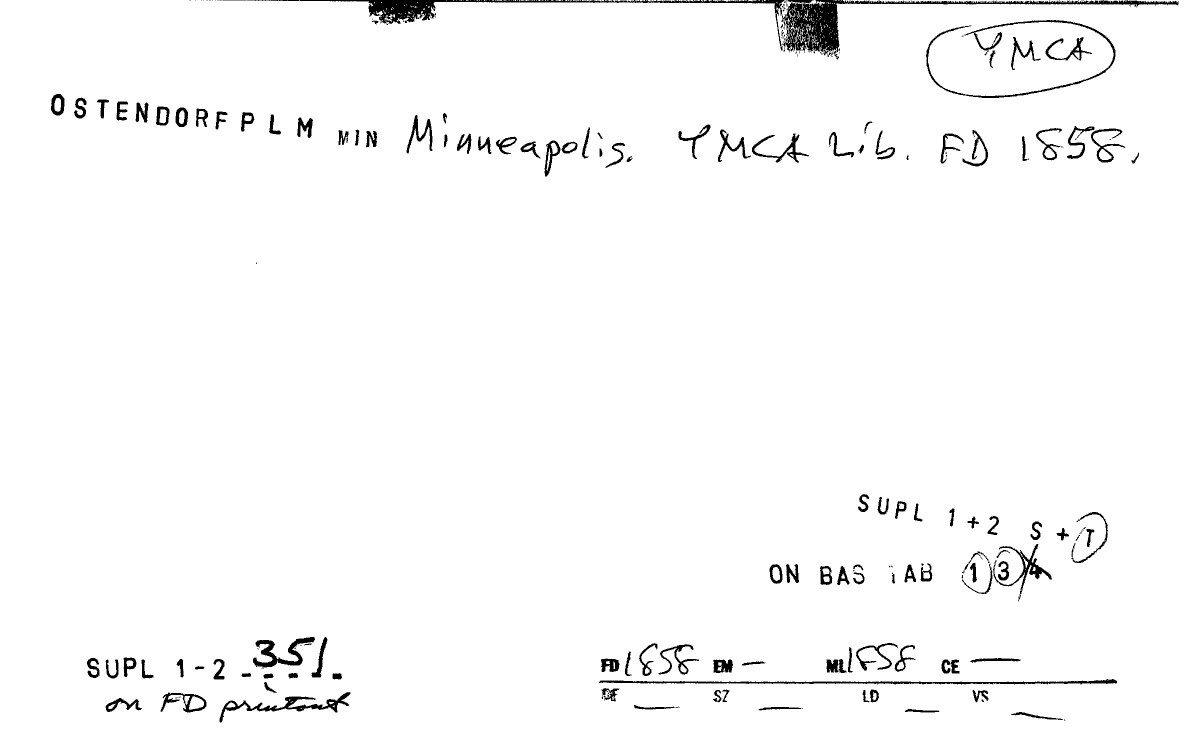 YMCA
OSTENDORF P L M MIN Minneapolis. YMCA Lib. FD 1858.
SUPL 1+2 S + T
ON BAS TAB 1 3 4
SUPL 1-2 351
on FD printout
FD 1858 EM — ML 1858 CE —
DF — SZ — LD — VS —